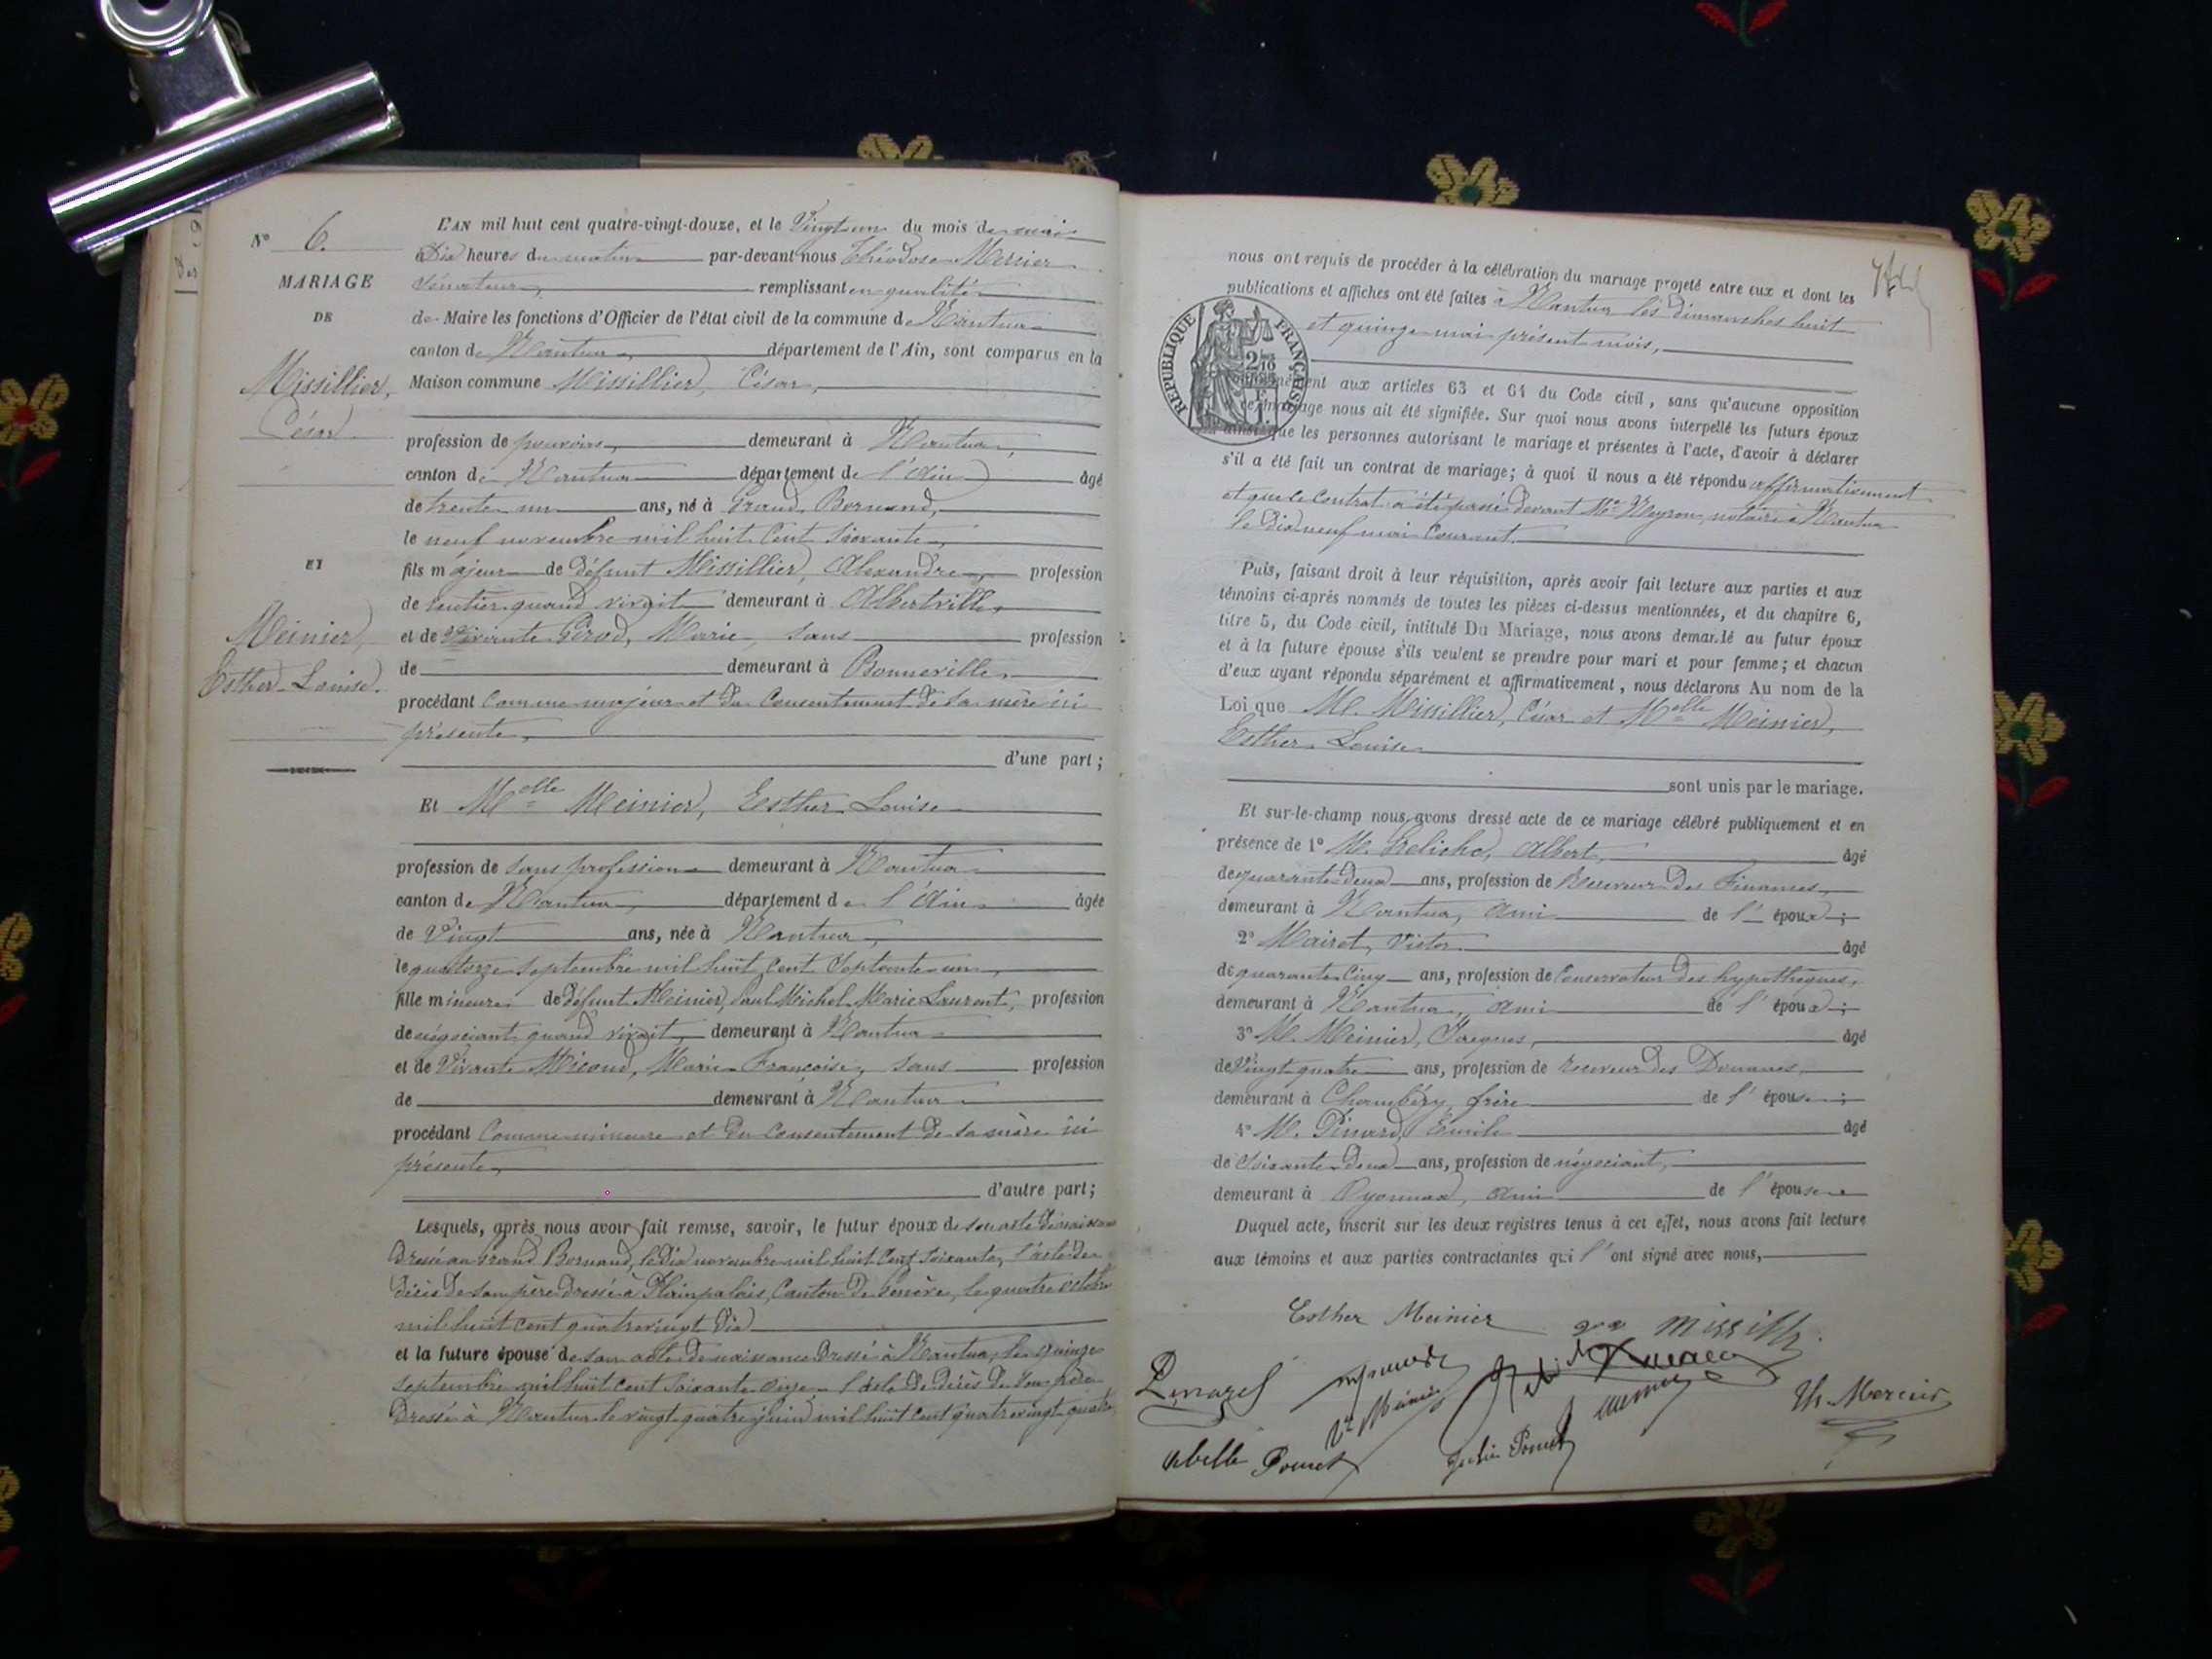 N° 6.
MARIAGE
DE
Missillier,
César
ET
Meinier,
Esther Louise.
L'AN mil huit cent quatre-vingt-douze, et le Vingt un du mois de mai
à Dix heures du matin par-devant nous Théodose Mercier
Sénateur, remplissant en qualité
de Maire les fonctions d'Officier de l'état civil de la commune de Nantua
canton de Nantua, département de l'Ain, sont comparus en la
Maison commune Missillier, César,
profession de demeurant à Nantua,
canton de Nantua département de l'Ain âgé
de trente un ans, né à Grand Bornand,
le neuf novembre mil huit cent soixante,
fils majeur de défunt Missillier, Alexandre, profession
de rentier quand vivait demeurant à Albertville,
et de Vivante Girod, Marie, sans profession
de demeurant à Bonneville,
procédant comme majeur et du consentement de sa mère ici
présente,
d'une part;
Et Melle Meinier, Esther Louise
profession de sans profession demeurant à Nantua
canton de Nantua, département de l'Ain âgée
de Vingt ans, née à Nantua,
le quatorze septembre mil huit cent septante un,
fille mineure de défunt Meinier, Paul Michel Marie Laurent, profession
de négociant quand vivait, demeurant à Nantua
et de Vivante Micoud, Marie Françoise, sans profession
de demeurant à Nantua
procédant comme mineure et du consentement de sa mère ici
présente,
d'autre part;
Lesquels, après nous avoir fait remise, savoir, le futur époux de son acte de naissance
Dressé au Grand Bornand, le Dix novembre mil huit cent soixante, l'acte de
décès de son père dressé à Plainpalais, Canton de Genève, le quatre octobre
mil huit cent quatrevingt Dix
et la future épouse de son acte de naissance Dressé à Nantua, le quinze
septembre mil huit cent soixante onze, l'acte de décès de son père
Dressé à Nantua le vingt quatre juin mil huit cent quatrevingt quatre
nous ont requis de procéder à la célébration du mariage projeté entre eux et dont les
publications et affiches ont été faites à Nantua les dimanches huit
et quinze mai présent mois,
RÉPUBLIQUE FRANÇAISE
aux articles 63 et 64 du Code civil, sans qu'aucune opposition
nous ait été signifiée. Sur quoi nous avons interpellé les futurs époux
que les personnes autorisant le mariage et présentes à l'acte, d'avoir à déclarer
s'il a été fait un contrat de mariage; à quoi il nous a été répondu affirmativement
et que le contrat a été passé devant Me Neyron, notaire à Nantua
le Dix neuf mai courant.
Puis, faisant droit à leur réquisition, après avoir fait lecture aux parties et aux
témoins ci-après nommés de toutes les pièces ci-dessus mentionnées, et du chapitre 6,
titre 5, du Code civil, intitulé Du Mariage, nous avons demandé au futur époux
et à la future épouse s'ils veulent se prendre pour mari et pour femme; et chacun
d'eux ayant répondu séparément et affirmativement, nous déclarons Au nom de la
Loi que M. Missillier, César et Melle Meinier,
Esther Louise
sont unis par le mariage.
Et sur-le-champ nous avons dressé acte de ce mariage célébré publiquement et en
présence de 1° M. Albert, âgé
de quarante deux ans, profession de Receveur des Finances,
demeurant à Nantua, ami de l' époux;
2° Mairet, Victor âgé
de quarante cinq ans, profession de Conservateur des hypothèques,
demeurant à Nantua, ami de l' époux;
3° M. Meinier, Jacques, âgé
de Vingt quatre ans, profession de receveur des Douanes,
demeurant à Chambéry, frère de l' épouse;
4° M. Pinard, Emile âgé
de soixante deux ans, profession de négociant,
demeurant à Oyonnax, ami de l' épouse
Duquel acte, inscrit sur les deux registres tenus à cet effet, nous avons fait lecture
aux témoins et aux parties contractantes qui l'ont signé avec nous,
Esther Meinier
Th. Mercier
Abelle Pomet